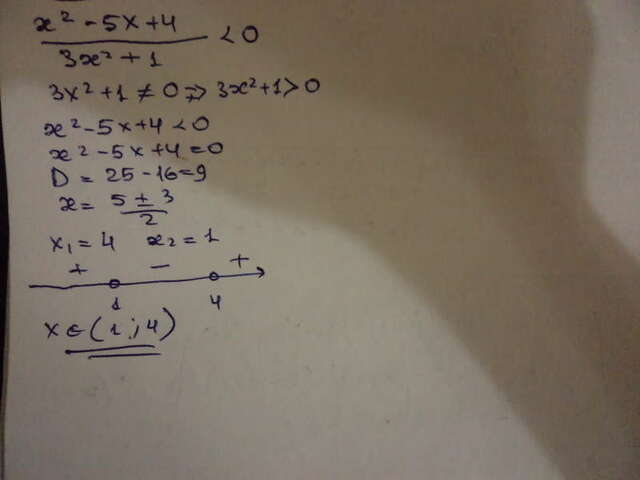 x² - 5x + 4
3x² + 1
< 0
3x² + 1 ≠ 0 => 3x² + 1 > 0
x² - 5x + 4 < 0
x² - 5x + 4 = 0
D = 25 - 16 = 9
x = 5 ± 3
2
x₁ = 4 x₂ = 1
+ - +
1 4
x ∈ (1; 4)